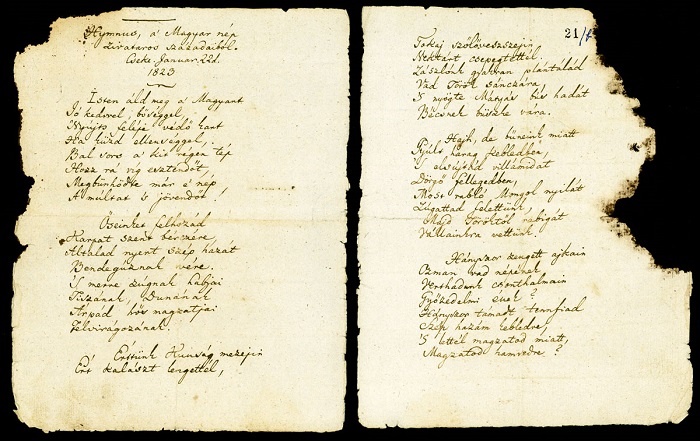 Hymnus, a' Magyar nép
zivataros századaiból.
Cseke. Januar. 22d.
1823
Isten áld meg a' Magyart
Jó kedvvel, bőséggel,
Nyújts feléje védő kart
Ha küzd ellenséggel;
Bal sors a' kit régen tép
Hozz rá víg esztendőt,
Megbűnhödte már e' nép
A' multat 's jövendőt!
Őseinket felhozád
Kárpát szent bérczére,
Általad nyert szép hazát
Bendegúznak vére.
'S merre zúgnak habjai
Tiszának, Dunának
Árpád hős magzatjai
Felvirágozának.
Értünk Kunság mezejin
Ért kalászt lengettél,
21/1
Tokaj szőlővesszejin
Nektárt csepegtettél.
Zászlónk gyakran plántálád
Vad Török sánczára,
'S nyögte Mátyás bús hadát
Bécsnek büszke vára.
Hajh, de bűneink miatt
Gyúlt harag kebledben,
'S elsújtád villámidat
Dörgő fellegedben,
Most rabló Mongol nyilát
Zúgattad felettünk,
Majd Töröktől rabigát
Vállainkra vettünk.
Hányszor zengett ajkain
Ozman vad népének
Vert hadunk csonthalmain
Győzedelmi ének?
Hányszor támadt tennfiad
Szép hazám kebledre,
'S lettél magzatod miatt,
Magzatod hamvedre?